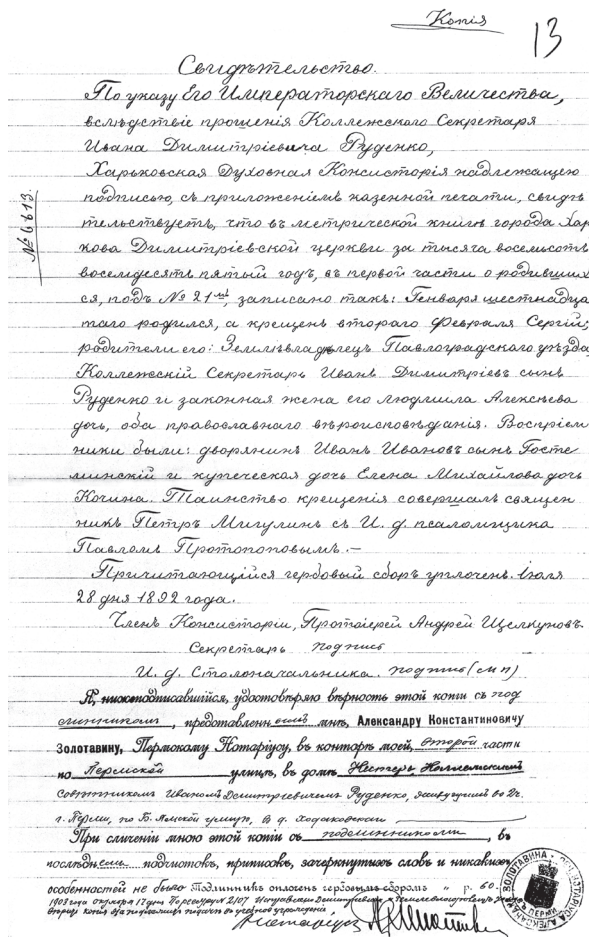 Копія
13
Свидѣтельство.
По указу Его Императорскаго Величества,
вслѣдствіе прошенія Коллежскаго Секретаря
Ивана Димитріевича Руденко,
Харьковская Духовная Консисторія надлежащею
подписью, съ приложеніемъ казенной печати, свидѣ
тельствуетъ, что въ метрической книгѣ города Харь
кова Димитріевской церкви за тысяча восемьсотъ
восемдесятъ пятый годъ, въ первой части о родивших
ся, подъ № 21мъ, записано такъ: Генваря шестнадца
таго родился, а крещенъ втораго Февраля Сергій;
родители его: Землевладѣлецъ Павлоградскаго уѣзда,
Коллежскій Секретарь Иванъ Димитріевъ сынъ
Руденко и законная жена его Людмила Алексѣева
дочь, оба православнаго вѣроисповѣданія. Воспріем
ники были: дворянинъ Иванъ Ивановъ сынъ Госте
минскій и купеческая дочь Елена Михайлова дочь
Кочина. Таинство крещенія совершалъ священ
никъ Петръ Мигулинъ съ И. д. псаломщика
Павломъ Протопоповымъ.—
Причитающійся гербовый сборъ уплоченъ. Іюля
28 дня 1892 года.
Членъ Консисторіи, Протоіерей Андрей Щелкуновъ.
Секретарь подпись
И. д. Столоначальника. подпись (м п)
№ 6813.
Я, нижеподписавшійся, удостовѣряю вѣрность этой копіи съ под
линникомъ, представленнымъ мнѣ, Александру Константиновичу
Золотавину, Пермскому Нотаріусу, въ конторѣ моей, второй части
по Пермской улицѣ, въ домѣ
совѣтникомъ Иваномъ Димитріевичемъ Руденко, живущимъ во 2ч.
г. Перми, по Б. Ямской улицѣ, въ д. Ходаковской
При сличеніи мною этой копіи съ подлинникомъ, въ
послѣднемъ подчистокъ, приписокъ, зачеркнутыхъ словъ и никакихъ
особенностей не было Подлинникъ оплоченъ гербовымъ сборомъ р. 60.
1903 года 17 дня По реестру № 2107
Нотаріусъ